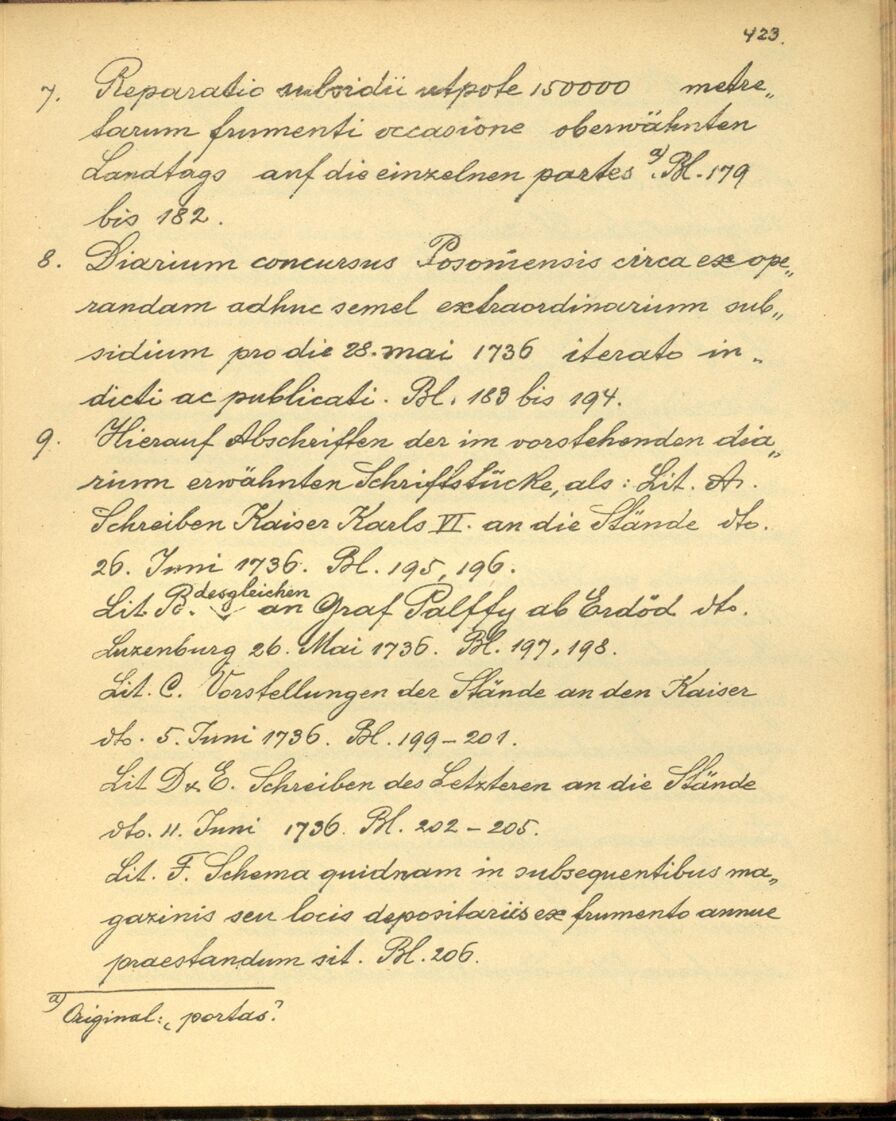 423.
7. Reparatio subsidii utpote 150000 metre„
tarum frumenti occasione oberwähnten
Landtags auf die einzelnen partes a). Bl. 179
bis 182.
8. Diarium concursus Posoniensis circa ex ope„
randam adhuc semel extraordinarium sub„
sidium pro die 28. mai 1736 iterato in„
dicti ac publicati. Bl. 183 bis 194.
9. Hierauf Abschriften der im vorstehenden dia„
rium erwähnten Schriftstücke, als: Lit. A.
Schreiben Kaiser Karls VI. an die Stände dto.
26. Juni 1736. Bl. 195, 196.
Lit. B. desgleichen an Graf Palffy ab Erdöd dto.
Luxenburg 26. Mai 1736. Bl. 197, 198.
Lit. C. Vorstellungen der Stände an den Kaiser
dto. 5. Juni 1736. Bl. 199 - 201.
Lit D & E. Schreiben des Letzteren an die Stände
dto. 11. Juni 1736. Bl. 202 - 205.
Lit. F. Schema quidnam in subsequentibus ma„
gazinis seu locis depositariis ex frumento annue
praestandum sit. Bl. 206.
a) Original: „portas“.